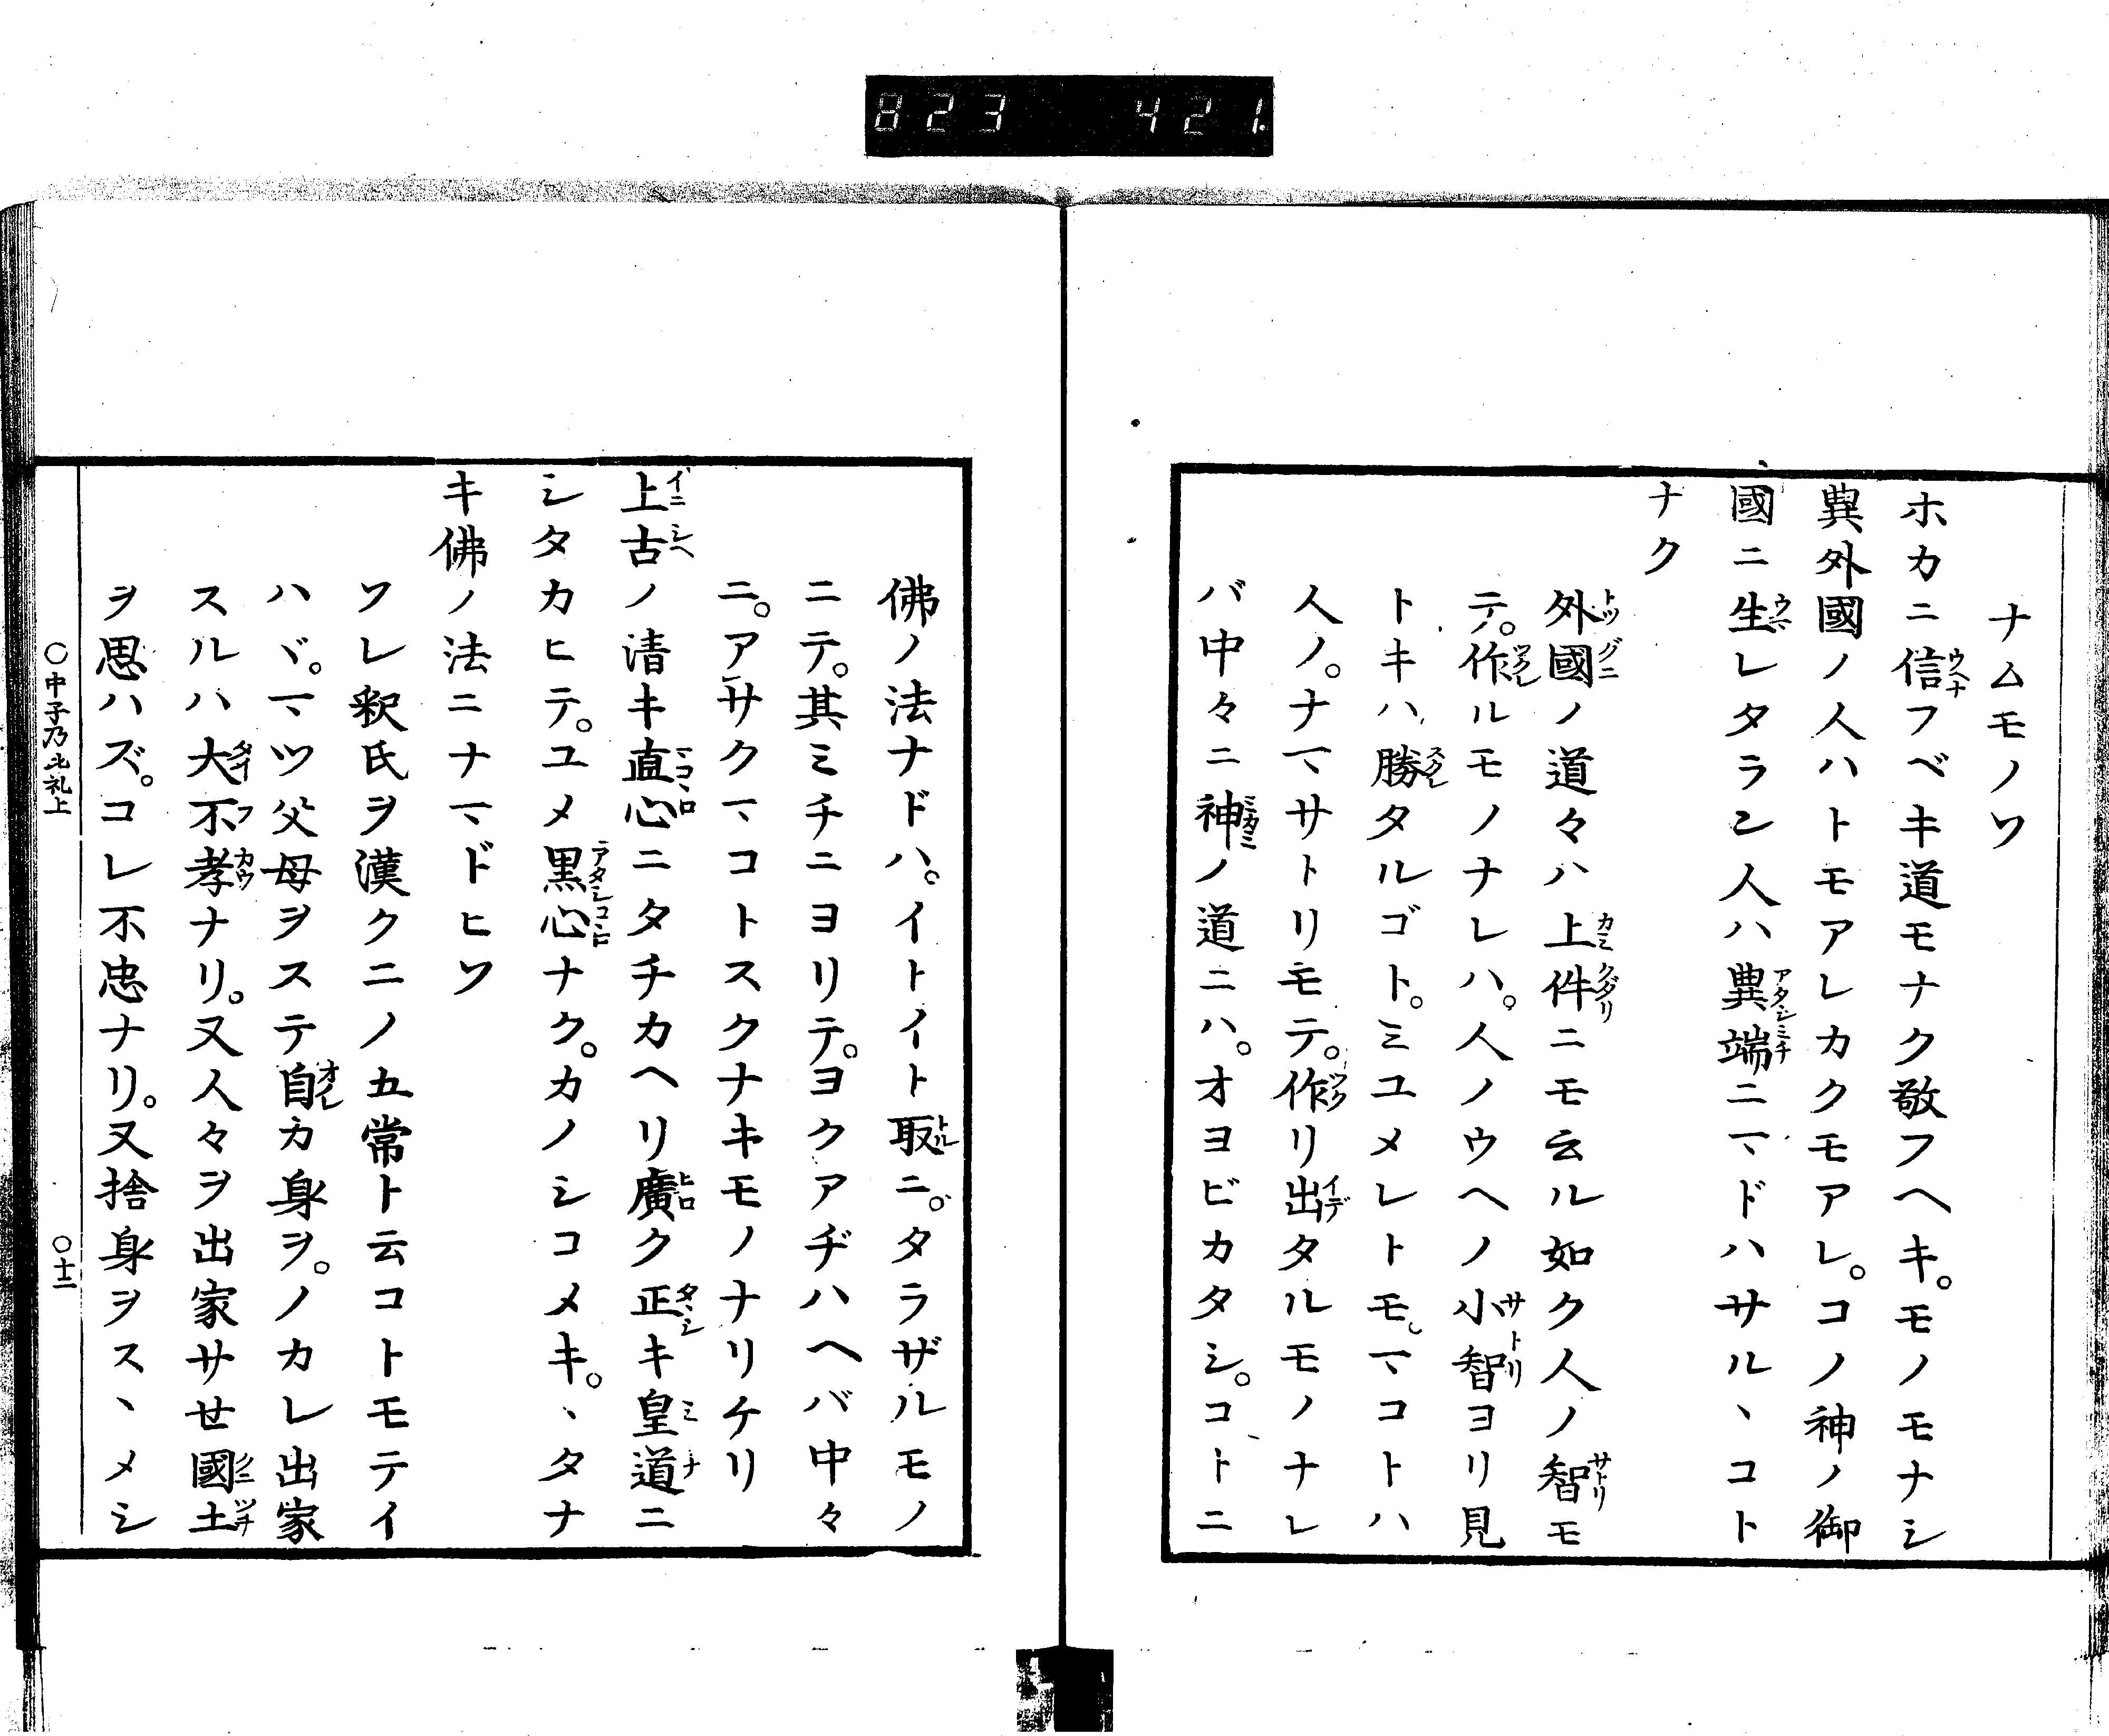 823 421.
ナムモノソ
ホカニ信フベキ道モナク敬フヘキ。モノモナシ
異外國ノ人ハトモアレカクモアレ。コノ神ノ御
國ニ生レタラン人ハ異端ニマドハサルヽコト
ナク
外國ノ道々ハ上件ニモ云ル如ク人ノ智モ
テ。作ルモノナレハ。人ノウヘノ小智ヨリ見
トキハ勝タルゴト。ミユメレトモ。マコトハ
人ノ。ナマサトリモテ。作リ出タルモノナレ
バ中々ニ神ノ道ニハ。オヨビカタシ。コトニ
佛ノ法ナドハ。イトイト取ニ。タラザルモノ
ニテ。其ミチニヨリテ。ヨクアヂハヘバ中々
ニ。アサクマコトスクナキモノナリケリ
上古ノ清キ直心ニタチカヘリ廣ク正キ皇道ニ
シタカヒテ。ユメ黒心ナク。カノシコメキ。ヽタナ
キ佛ノ法ニナマドヒソ
ワレ釈氏ヲ漢クニノ五常ト云コトモテイ
ハヾ。マツ父母ヲステ自カ身ヲ。ノカレ出家
スルハ大不孝ナリ。又人々ヲ出家サせ國土
ヲ思ハズ。コレ不忠ナリ。又捨身ヲスヽメシ
〇中子乃比礼上 〇十二